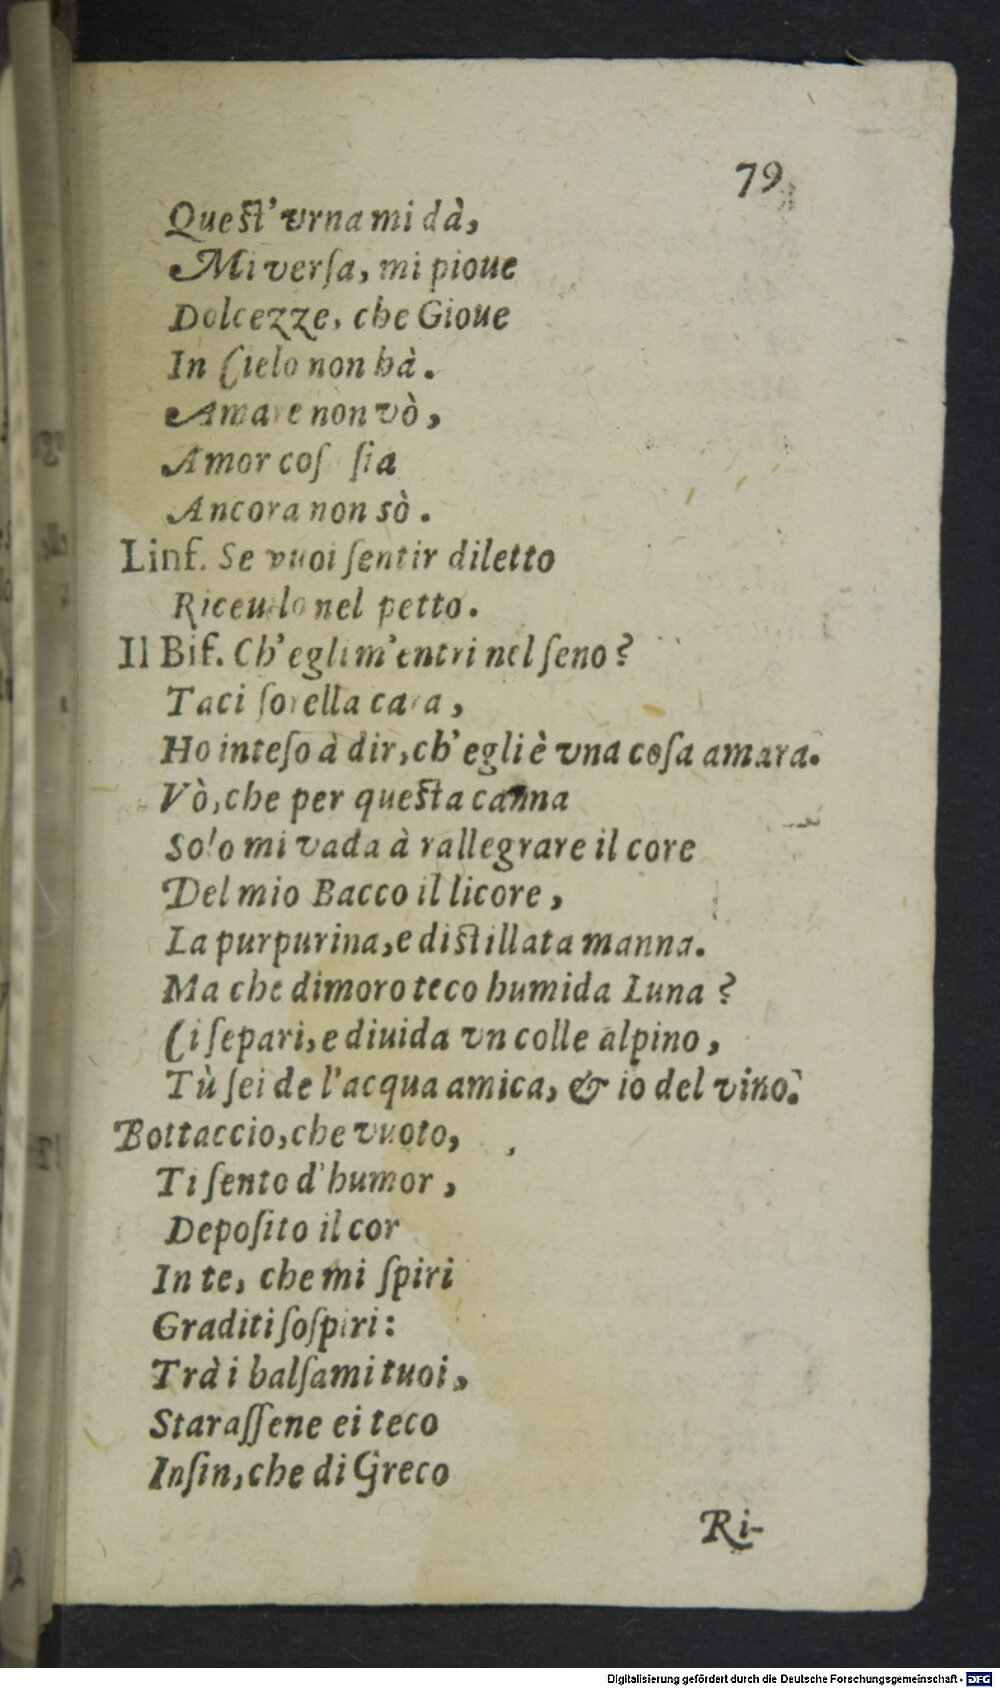 79
Queſt' vrna mi dà,
Mi verſa, mi pioue
Dolcezze, che Gioue
In Cielo non hà.
Amare non vò,
Amor coſ ſia
Ancora non sò.
Linf. Se vuoi ſentir diletto
Riceuilo nel petto.
Il Bif. Ch' egli m'entri nel ſeno?
Taci ſorella cara,
Ho inteſo à dir, ch' egli è vna coſa amara.
Vò, che per queſta canna
Solo mi vada à rallegrare il core
Del mio Bacco il licore,
La purpurina, e diſtillata manna.
Ma che dimoro teco humida Luna?
Ci ſepari, e diuida vn colle alpino,
Tù ſei de l'acqua amica, & io del vino.
Bottaccio, che vuoto,
Ti ſento d'humor,
Depoſito il cor
In te, che mi ſpiri
Graditi ſoſpiri:
Trà i balſami tuoi,
Staraſſene ei teco
Inſin, che di Greco
Ri-
Digitalisierung gefördert durch die Deutsche Forschungsgemeinschaft - DFG